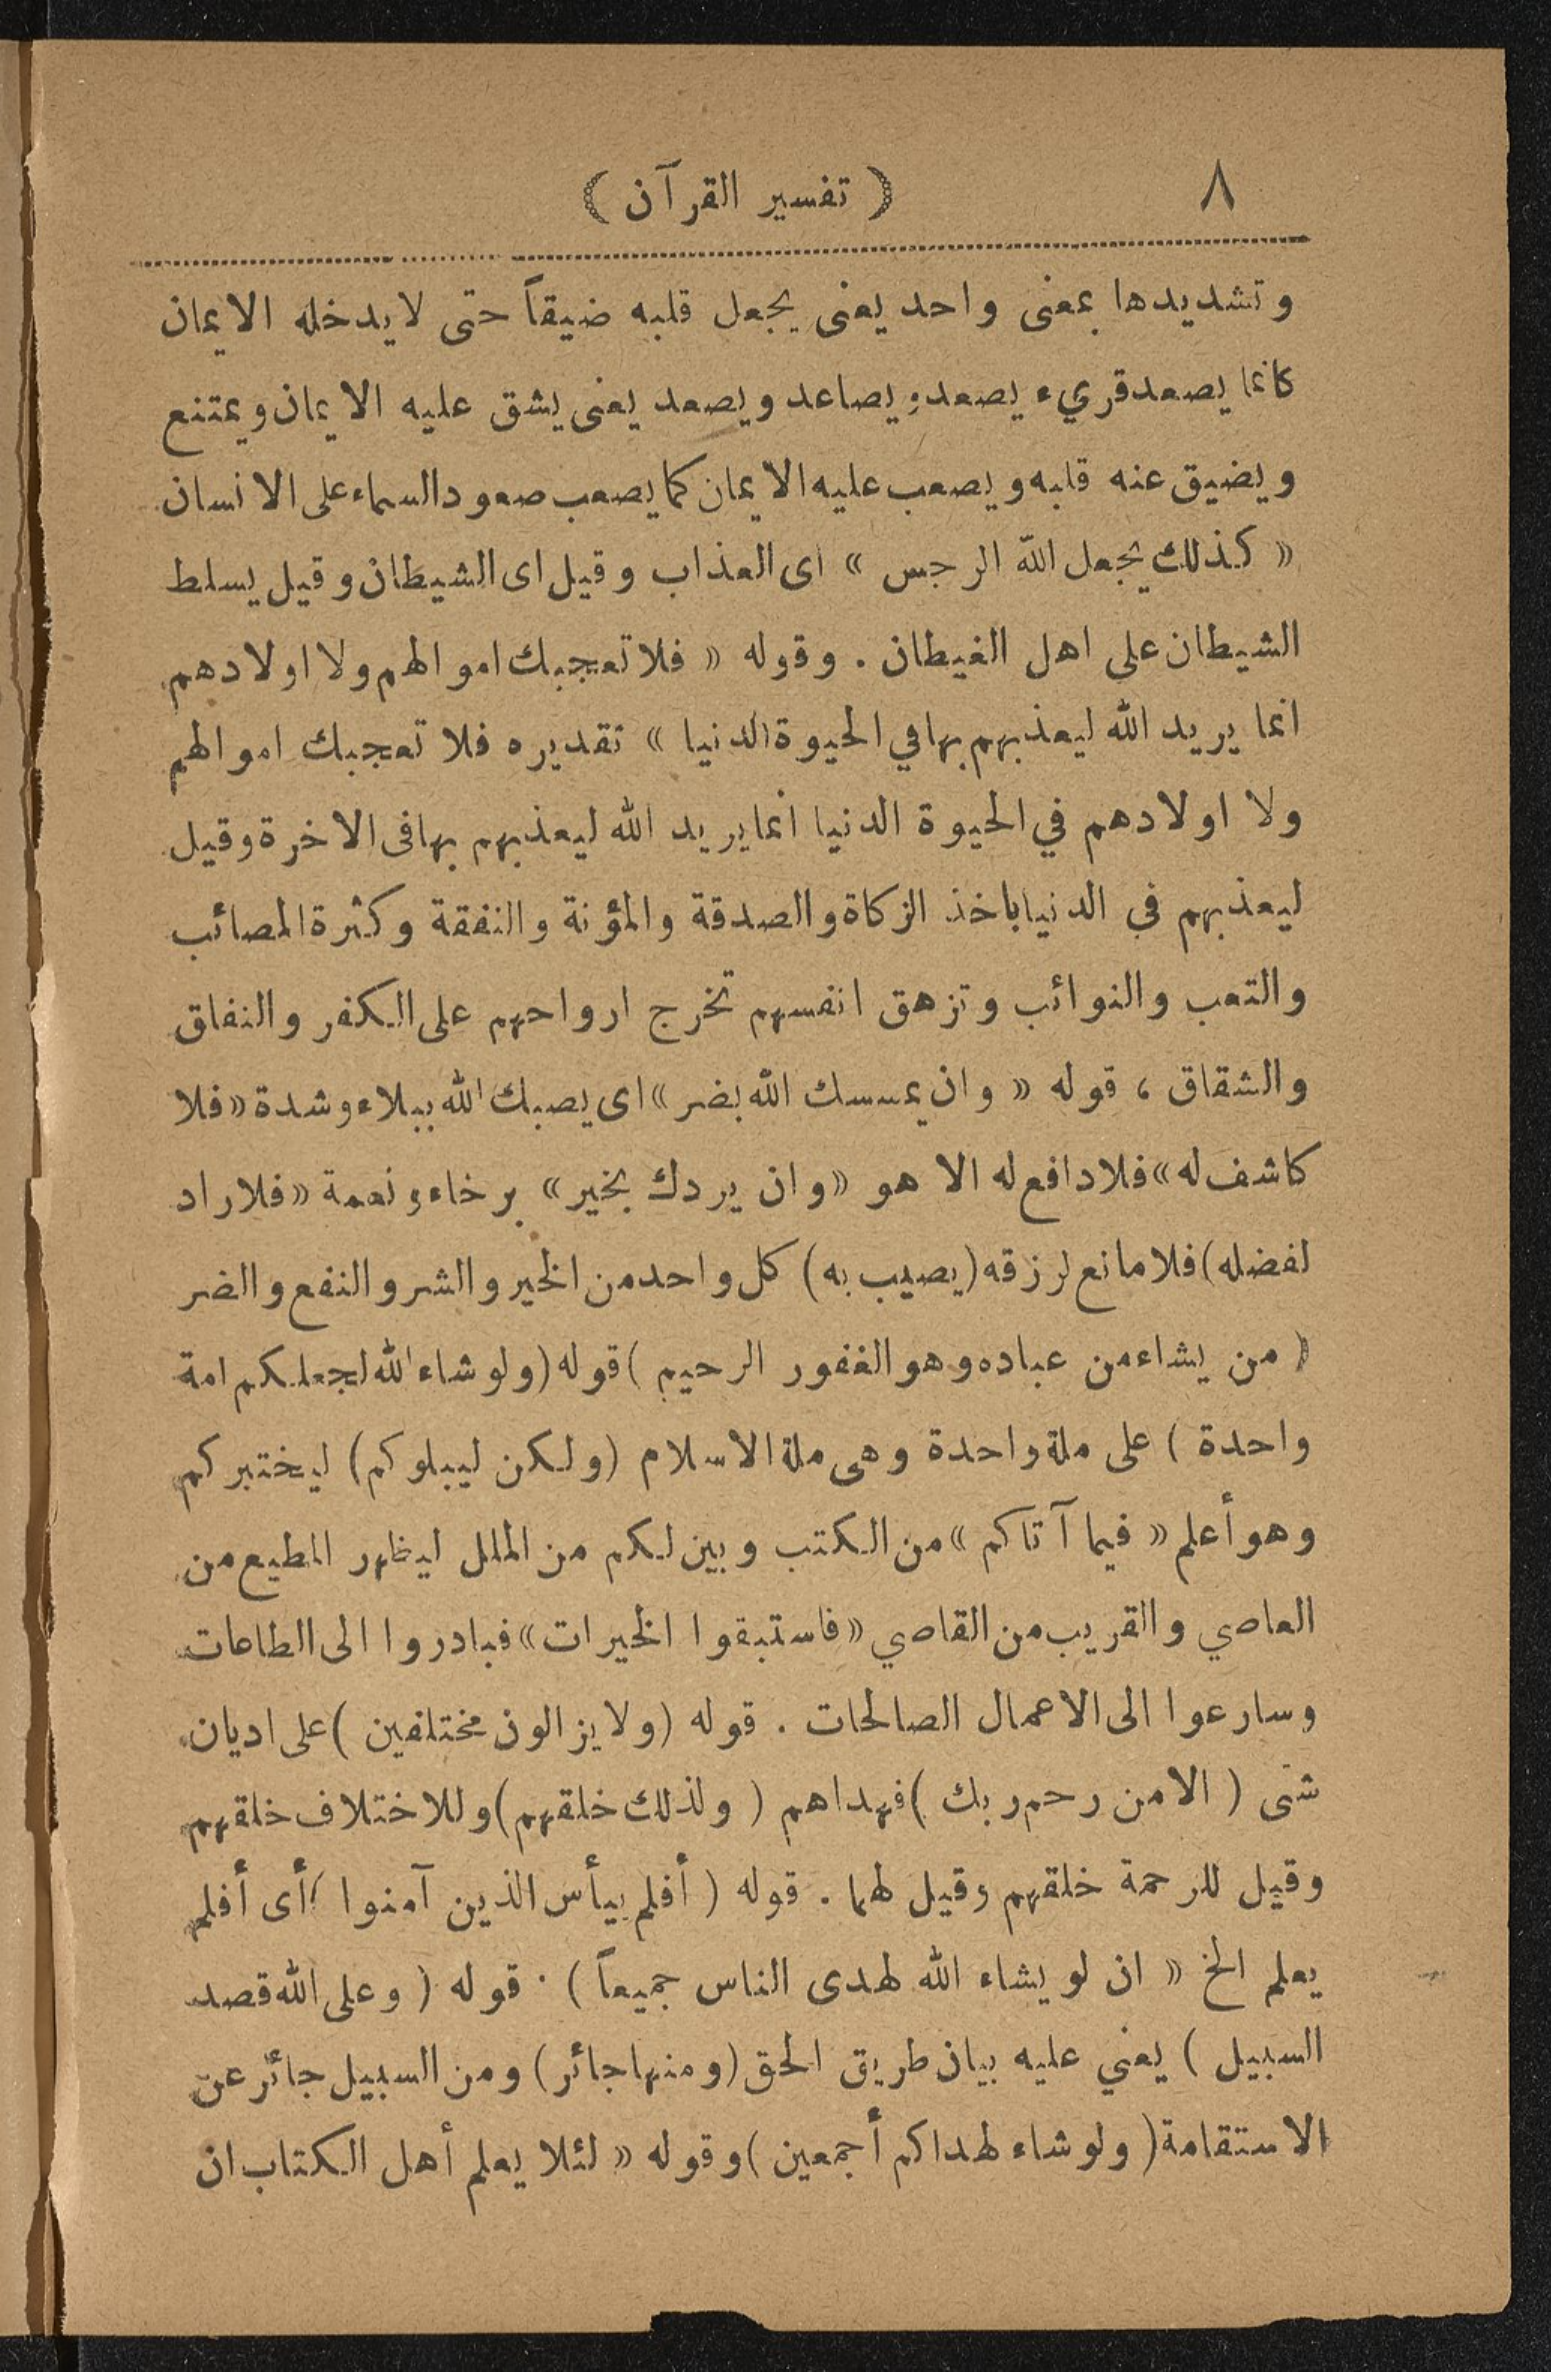 ٨ ( تفسير القرآن )
وتشديدها بمعنى واحد يعنى يجعل قلبه ضيقاً حتى لا يدخله الايمان
كانما يصعد قريء يصعد ويصاعد ويصعد يعنى يشق عليه الايمان ويمتنع
ويضيق عنه قلبه ويصعب عليه الايمان كما يصعب صعود السماء على الانسان
« كذلك يجعل الله الرجس » اى العذاب وقيل اى الشيطان وقيل يسلط
الشيطان على اهل الغيطان . وقوله « فلا تعجبك اموالهم ولا اولادهم
انما يريد الله ليعذبهم بها في الحيوة الدنيا » تقديره فلا تعجبك اموالهم
ولا اولادهم في الحيوة الدنيا انما يريد الله ليعذبهم بها فى الاخرة وقيل
ليعذبهم في الدنيا باخذ الزكاة والصدقة والمؤنة والنفقة وكثرة المصائب
والتعب والنوائب وتزهق انفسهم تخرج ارواحهم على الكفر والنفاق
والشقاق ، قوله « وان يمسسك الله بضر » اى يصبك الله ببلاء وشدة « فلا
كاشف له » فلا دافع له الا هو « وان يردك بخير » برخاء ونعمة « فلا راد
لفضله ) فلا مانع لرزقه ( يصيب به ) كل واحد من الخير والشر والنفع والضر
( من يشاء من عباده وهو الغفور الرحيم ) قوله ( ولو شاء الله لجعلكم امة
واحدة ) على ملة واحدة وهى ملة الاسلام ( ولكن ليبلوكم ) ليختبركم
وهو أعلم « فيما آتاكم » من الكتب وبين لكم من الملل ليظهر المطيع من
العاصي والقريب من القاصي « فاستبقوا الخيرات » فبادروا الى الطاعات
وسارعوا الى الاعمال الصالحات . قوله ( ولا يزالون مختلفين ) على اديان
شتى ( الا من رحم ربك ) فهداهم ( ولذلك خلقهم ) وللاختلاف خلقهم
وقيل للرحمة خلقهم وقيل لهما . قوله ( أفلم ييأس الذين آمنوا ) أى أفلم
يعلم الخ « ان لو يشاء الله لهدى الناس جميعاً ) . قوله ( وعلى الله قصد
السبيل ) يعني عليه بيان طريق الحق ( ومنها جائر ) ومن السبيل جائر عن
الاستقامة ( ولو شاء لهداكم أجمعين ) وقوله « لئلا يعلم أهل الكتاب ان